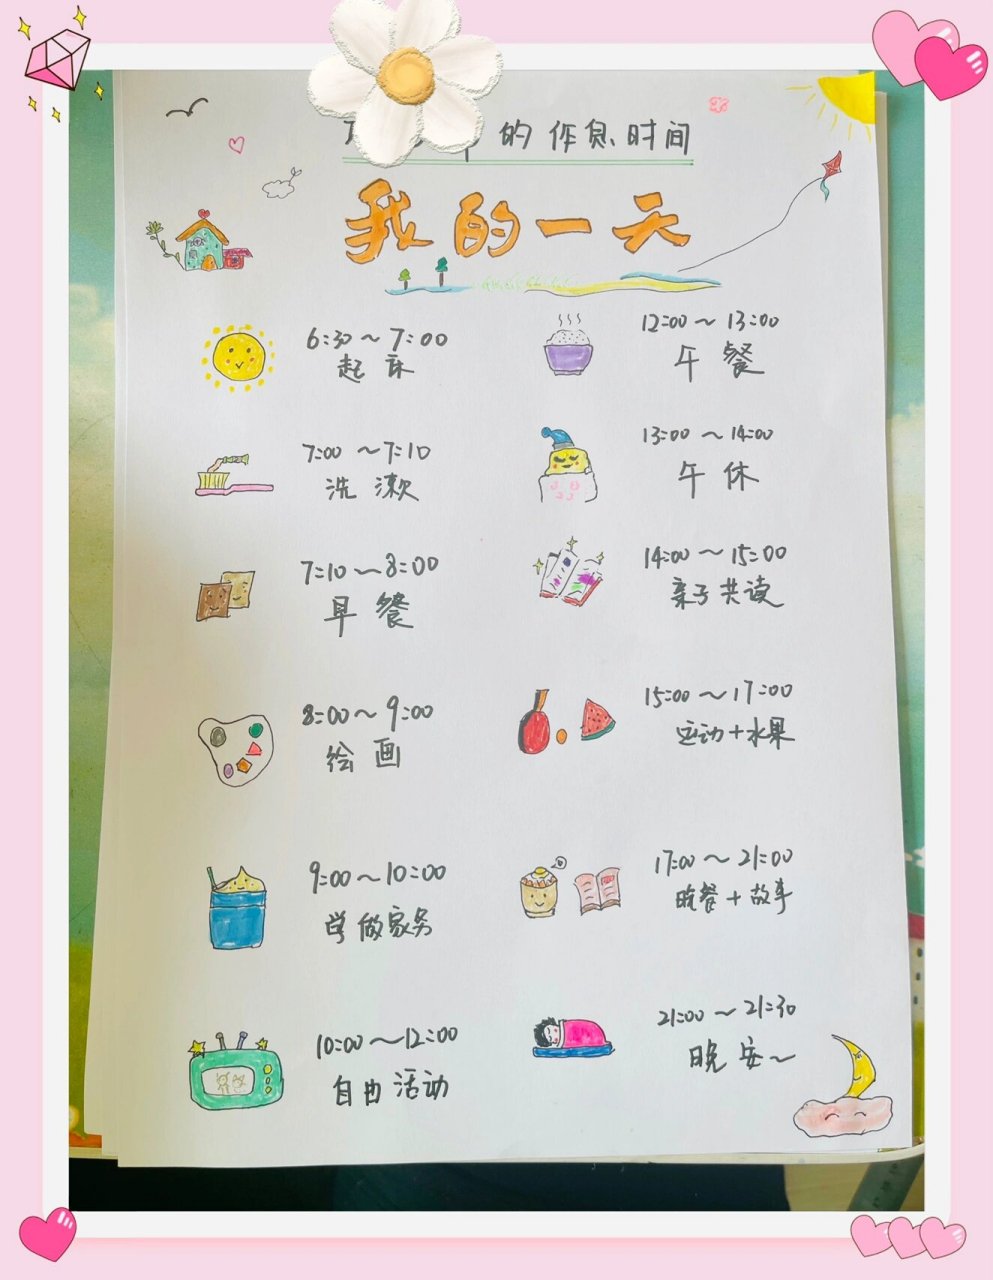 的作息时间
我的一天
6:30～7:00
起床
7:00～7:10
洗漱
7:10～8:00
早餐
8:00～9:00
绘画
9:00～10:00
学做家务
10:00～12:00
自由活动
12:00～13:00
午餐
13:00～14:00
午休
14:00～15:00
亲子共读
15:00～17:00
运动+水果
17:00～21:00
晚餐+故事
21:00～21:30
晚安～